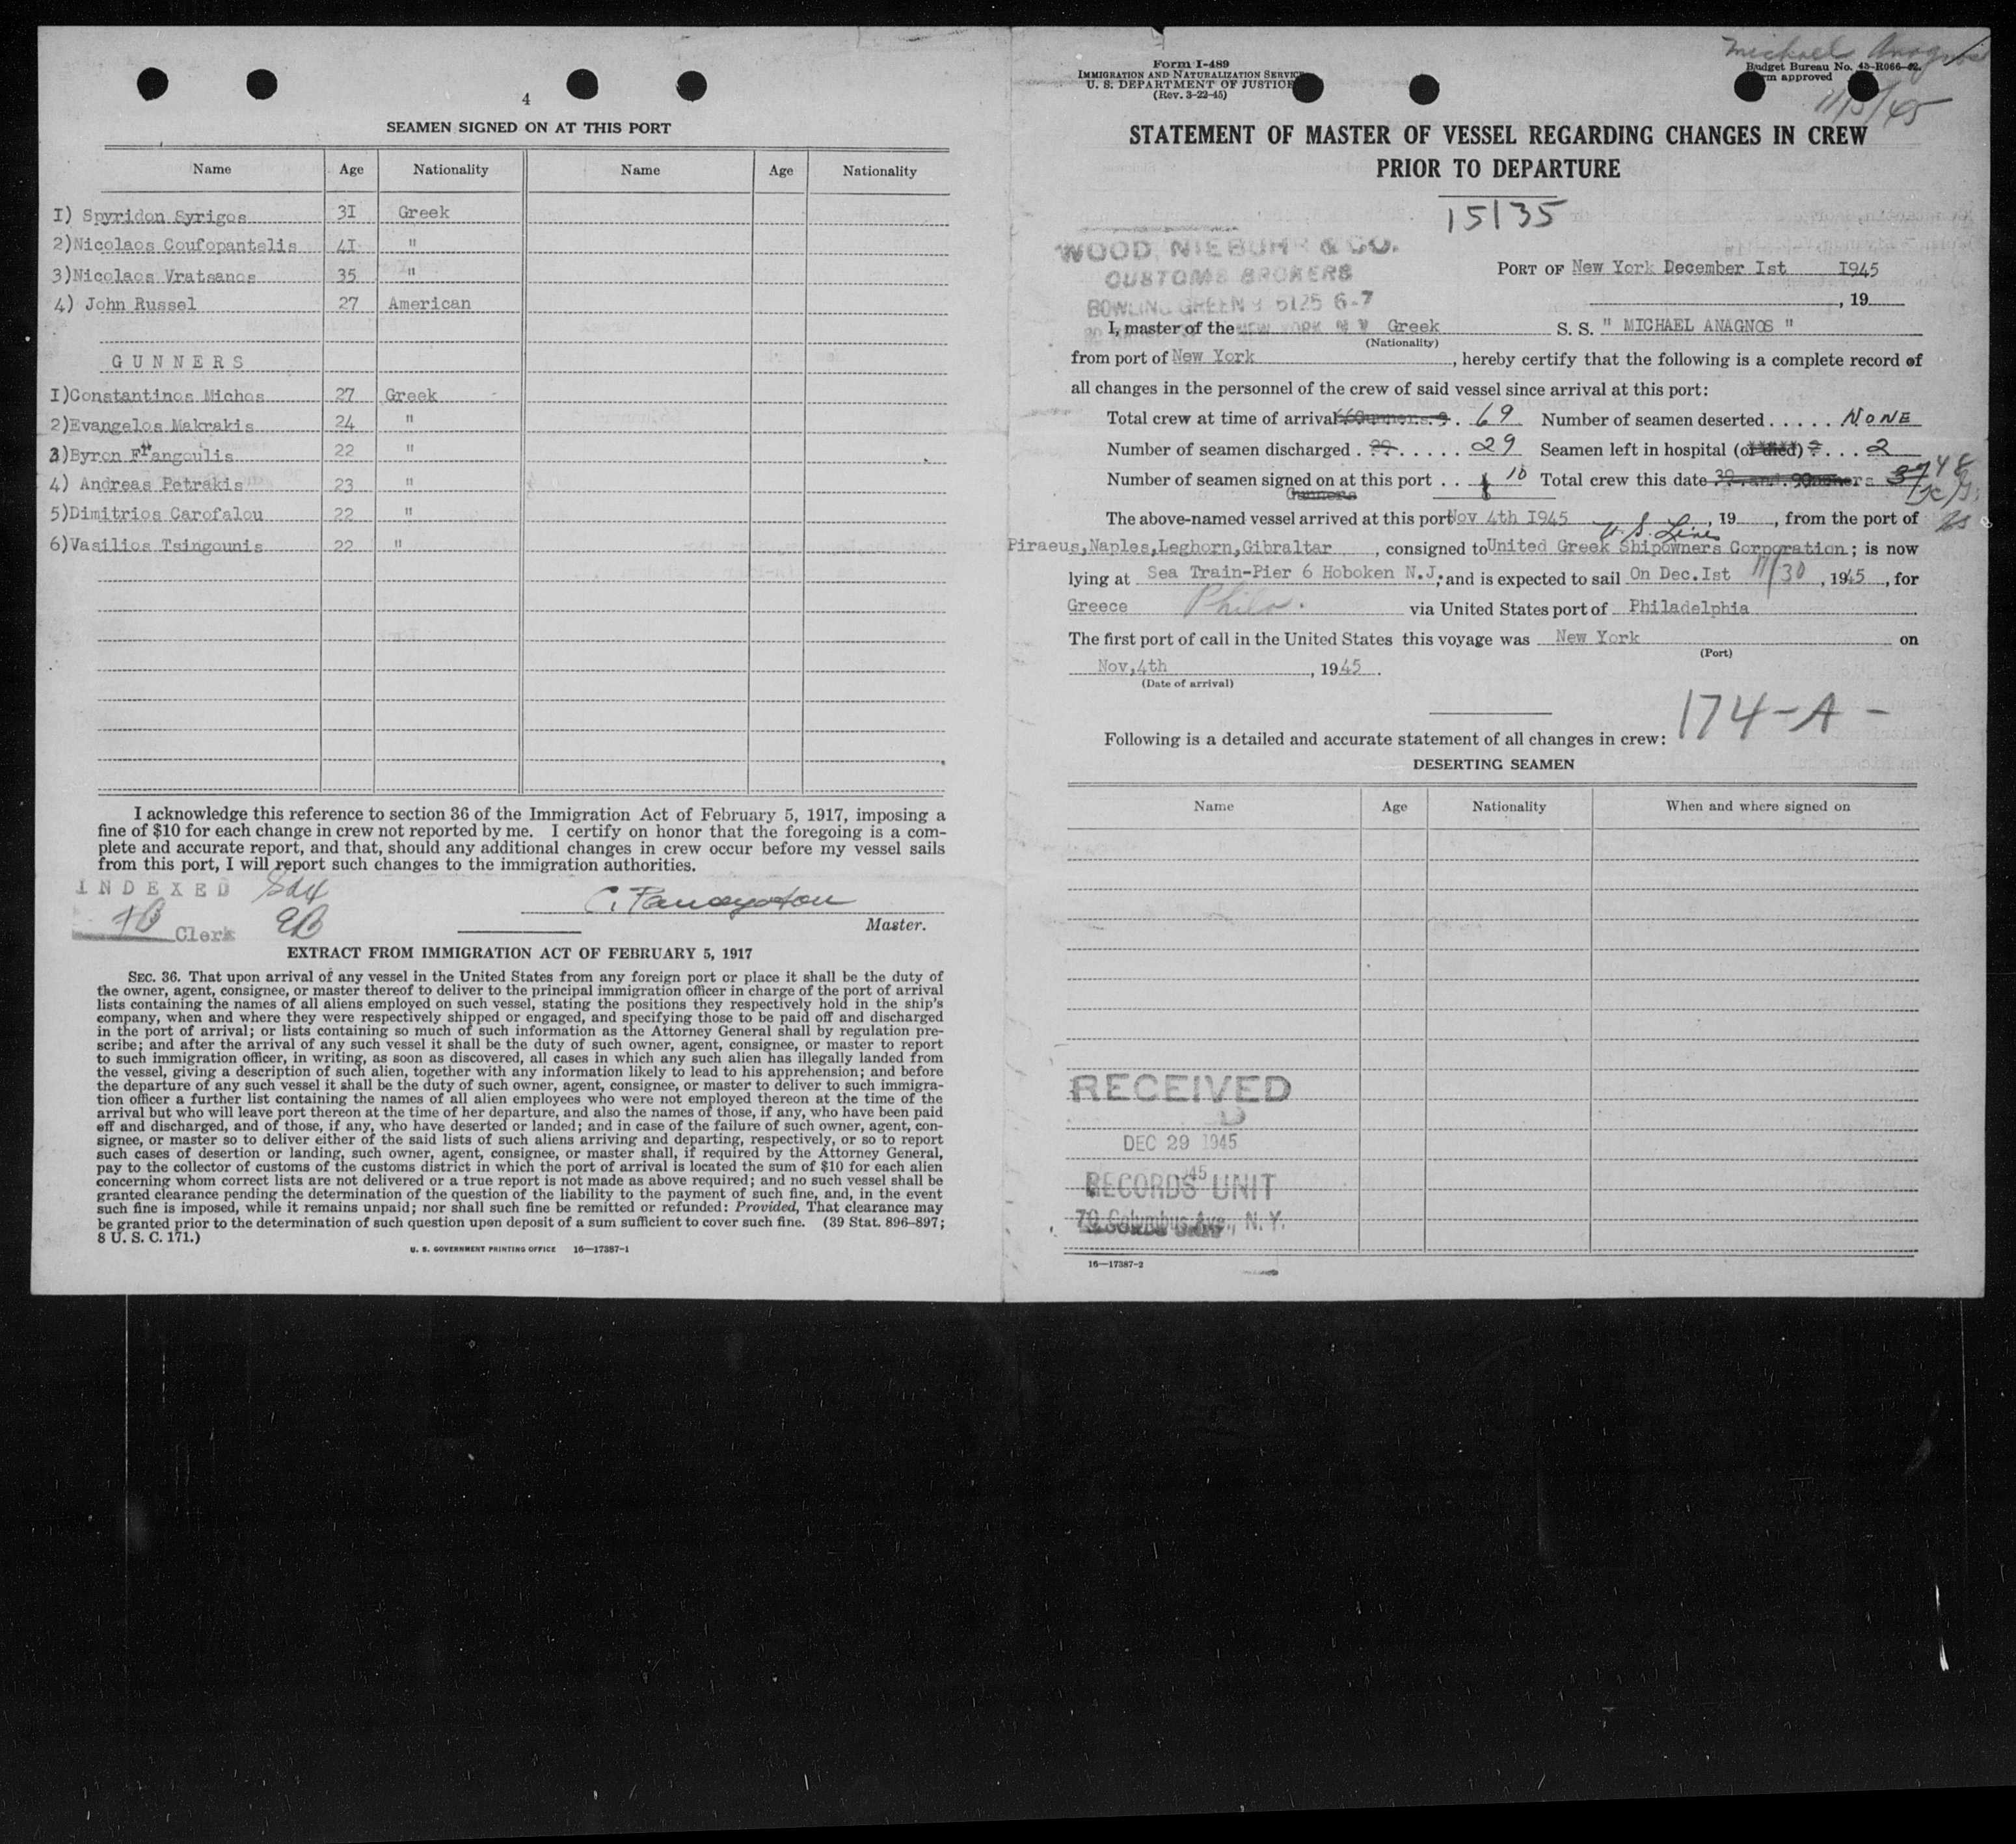 4
SEAMEN SIGNED ON AT THIS PORT
Name Age Nationality Name Age Nationality
I) Spyridon Syrigos 3I Greek
2)Nicolaos Coufopantelis 4I "
3)Nicolaos Vratsanos 35 "
4) John Russel 27 American
G U N N E R S
I)Constantinos Michos 27 Greek
2)Evangelos Makrakis 24 "
3)Byron Frangoulis 22 "
4) Andreas Petrakis 23 "
5)Dimitrios Carofalou 22 "
6)Vasilios Tsingounis 22 "
I acknowledge this reference to section 36 of the Immigration Act of February 5, 1917, imposing a
fine of $10 for each change in crew not reported by me. I certify on honor that the foregoing is a com-
plete and accurate report, and that, should any additional changes in crew occur before my vessel sails
from this port, I will report such changes to the immigration authorities.
INDEXED
Clerk
Master.
EXTRACT FROM IMMIGRATION ACT OF FEBRUARY 5, 1917
SEC. 36. That upon arrival of any vessel in the United States from any foreign port or place it shall be the duty of
the owner, agent, consignee, or master thereof to deliver to the principal immigration officer in charge of the port of arrival
lists containing the names of all aliens employed on such vessel, stating the positions they respectively hold in the ship's
company, when and where they were respectively shipped or engaged, and specifying those to be paid off and discharged
in the port of arrival; or lists containing so much of such information as the Attorney General shall by regulation pre-
scribe; and after the arrival of any such vessel it shall be the duty of such owner, agent, consignee, or master to report
to such immigration officer, in writing, as soon as discovered, all cases in which any such alien has illegally landed from
the vessel, giving a description of such alien, together with any information likely to lead to his apprehension; and before
the departure of any such vessel it shall be the duty of such owner, agent, consignee, or master to deliver to such immigra-
tion officer a further list containing the names of all alien employees who were not employed thereon at the time of the
arrival but who will leave port thereon at the time of her departure, and also the names of those, if any, who have been paid
off and discharged, and of those, if any, who have deserted or landed; and in case of the failure of such owner, agent, con-
signee, or master so to deliver either of the said lists of such aliens arriving and departing, respectively, or so to report
such cases of desertion or landing, such owner, agent, consignee, or master shall, if required by the Attorney General,
pay to the collector of customs of the customs district in which the port of arrival is located the sum of $10 for each alien
concerning whom correct lists are not delivered or a true report is not made as above required; and no such vessel shall be
granted clearance pending the determination of the question of the liability to the payment of such fine, and, in the event
such fine is imposed, while it remains unpaid; nor shall such fine be remitted or refunded: Provided, That clearance may
be granted prior to the determination of such question upon deposit of a sum sufficient to cover such fine. (39 Stat. 896-897;
8 U. S. C. 171.)
U. S. GOVERNMENT PRINTING OFFICE 16—17387-1
Michael Anagnos
11/15/45
Form I-489
IMMIGRATION AND NATURALIZATION SERVICE
U. S. DEPARTMENT OF JUSTICE
(Rev. 3-22-45)
Budget Bureau No. 43-R066-42.
Form approved
STATEMENT OF MASTER OF VESSEL REGARDING CHANGES IN CREW
PRIOR TO DEPARTURE
15135
WOOD, NIEBUHR & CO.
CUSTOMS BROKERS
BOWLING GREEN 9 6125 6-7
NEW YORK N Y
PORT OF New York December Ist 1945
, 19
I, master of the Greek S. S. " MICHAEL ANAGNOS "
(Nationality)
from port of New York , hereby certify that the following is a complete record of
all changes in the personnel of the crew of said vessel since arrival at this port:
Total crew at time of arrival 69 Number of seamen deserted . . . . . NONE
Number of seamen discharged . 29 Seamen left in hospital (or died) . . . 2
Number of seamen signed on at this port . . 10 Total crew this date 37 48
Gunners
The above-named vessel arrived at this port Nov 4th I945 , 19 , from the port of
U.S. Lines
Piraeus,Naples,Leghorn,Gibraltar , consigned to United Greek Shipowners Corporation ; is now
lying at Sea Train-Pier 6 Hoboken N.J. ; and is expected to sail On Dec.Ist 11/30 , 1945 , for
Greece Phila. via United States port of Philadelphia
The first port of call in the United States this voyage was New York on
(Port)
Nov,4th , 1945 .
(Date of arrival)
174-A-
Following is a detailed and accurate statement of all changes in crew:
DESERTING SEAMEN
Name Age Nationality When and where signed on
RECEIVED
D
DEC 29 1945
RECORDS UNIT
70 Columbus Ave., N. Y.
16—17387-2